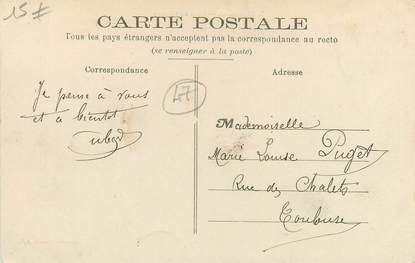 15#
CARTE POSTALE
Tous les pays étrangers n'acceptent pas la correspondance au recto
(se renseigner à la poste)
Correspondance
47
Je pense à vous
et à bientôt
Adresse
Mademoiselle
Marie Louise Puget
Rue des Chalets
Toulouse